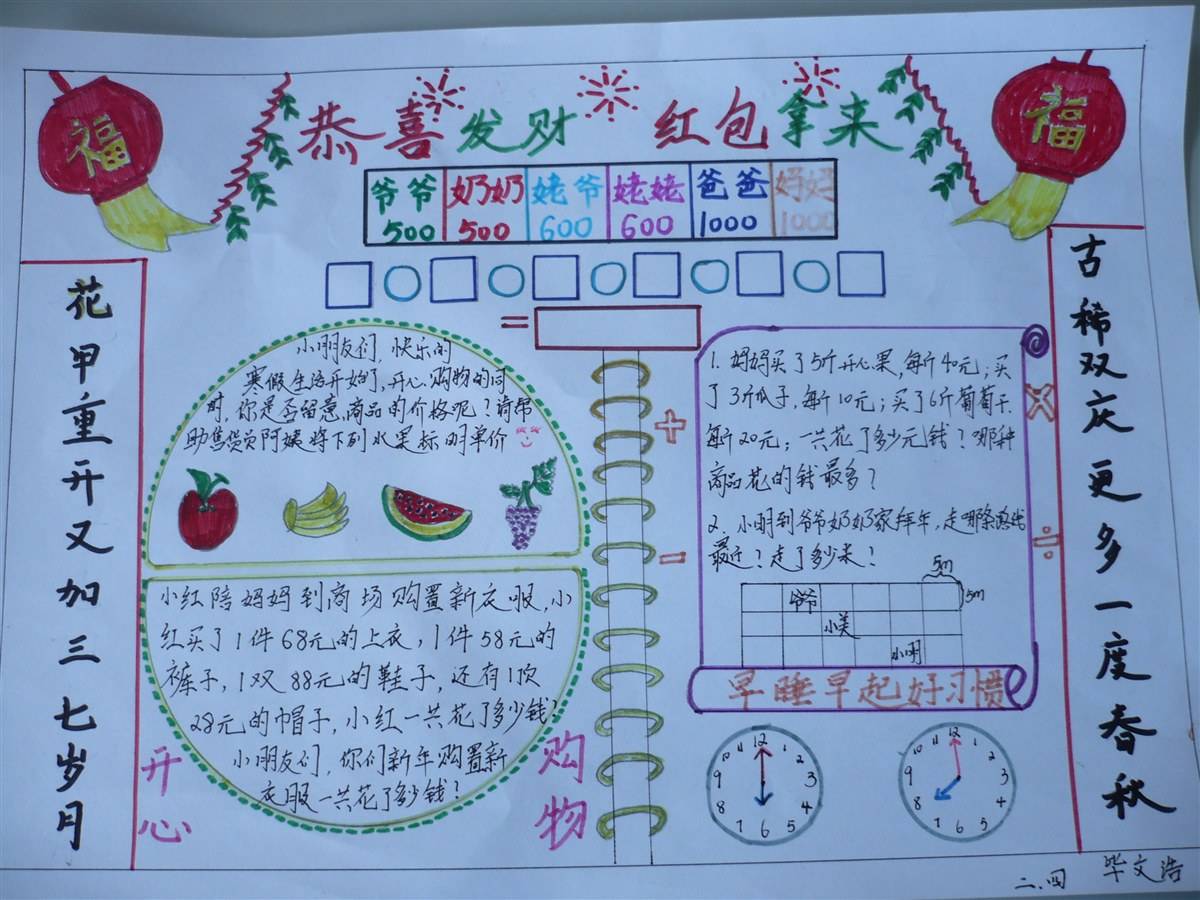 福
福
恭喜发财 红包拿来
爷爷 奶奶 姥爷 姥姥 爸爸 妈妈
500 500 600 600 1000 1000
=
花甲重开又加三七岁月
古稀双庆更多一度春秋
小朋友们，快乐的
寒假生活开始了，开心购物的同
时，你是否留意商品的价格呢？请帮
助售货员阿姨将下列水果标明单价
小红陪妈妈到商场购置新衣服，小
红买了1件68元的上衣，1件58元的
裤子，1双88元的鞋子，还有1顶
28元的帽子，小红一共花了多少钱？
小朋友们，你们新年购置新
衣服一共花了多少钱？
开心
购物
+
-
×
÷
1. 妈妈买了5斤开心果，每斤40元；买
了3斤瓜子，每斤10元；买了6斤葡萄干
每斤20元；一共花了多少元钱？哪种
商品花的钱最多？
2. 小明到爷爷奶奶家拜年，走哪条路线
最近？走了多少米？
5m
5m
爷爷
小美
小明
早睡早起好习惯
12 1 2 3 4 5 6 7 8 9 10 11
12 1 2 3 4 5 6 7 8 9 10 11
二.四 毕文浩